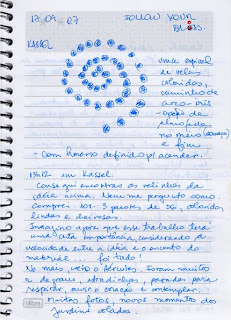 17.09.07
FOLLOW YOUR
BLISS.
KASSEL
uma espiral
de velas
coloridas,
caminho de
arco-iris
opção de
no meio (começo)
e fim
- Com horário definido p/ acender.
17h12 em Kassel
Consegui encontrar as velinhas da
idéia acima. Nem me pergunte como.
Comprei 108. 3 pacotes de 36, coloridas,
lindas e cheirosas.
Imagino agora que esse trabalho terá
uma certa importância, considerando a
velocidade entre a idéia e o encontro do
material... foi tudo!
No mais, veio o Hércules. Foram muitos
degraus, paradas para
respirar, ouvir o coração e contemplar.
Muitas fotos, novos momentos dos
jardins colados.